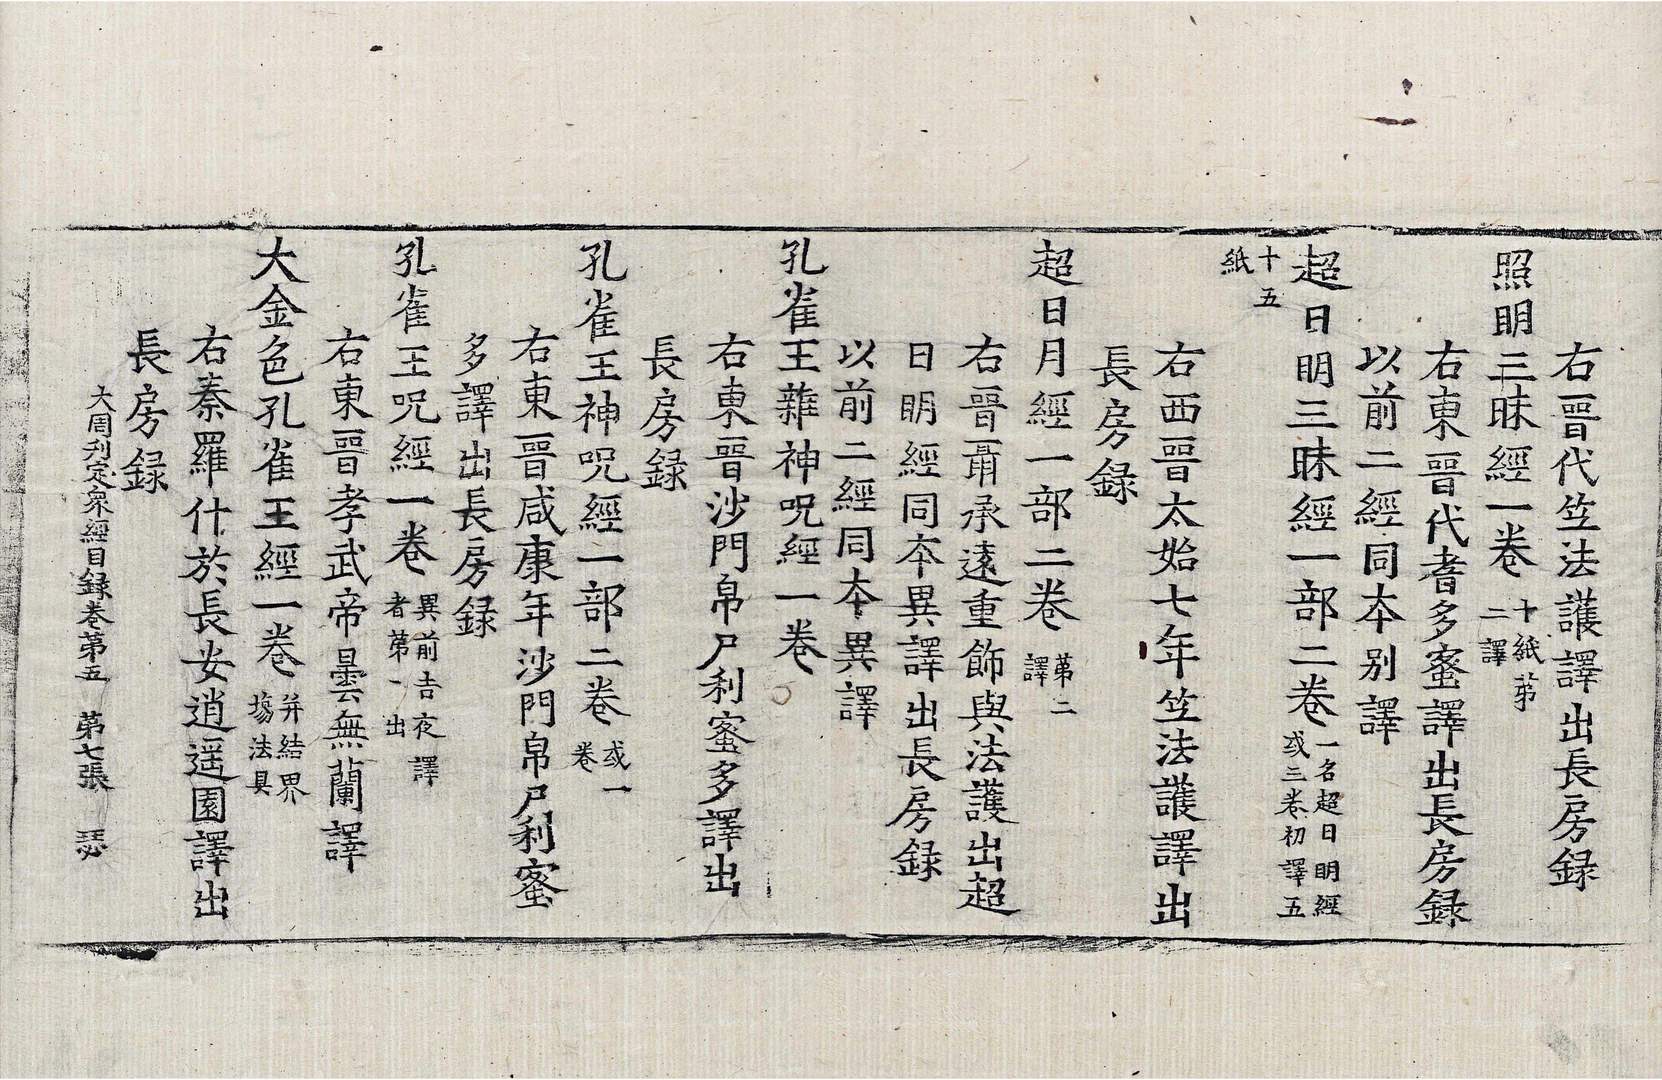 右晉代竺法護譯出長房録
照明三昧經一卷 十紙第二譯
右東晉代耆多蜜譯出長房録
以前二經同本別譯
超日明三昧經一部二卷 一名超日明經或三卷初譯五
十五紙
右西晉太始七年竺法護譯出
長房録
超日月經一部二卷 第二譯
右晉聶承遠重飾與法護出超
日明經同本異譯出長房録
以前二經同本異譯
孔雀王雜神呪經一卷
右東晉沙門帛尸利蜜多譯出
長房録
孔雀王神呪經一部二卷 或一卷
右東晉咸康年沙門帛尸利蜜
多譯出長房録
孔雀王呪經一卷 異前吉夜譯者第一出
右東晉孝武帝曇無蘭譯
大金色孔雀王經一卷 并結界場法具
右秦羅什於長安逍遥園譯出
長房録
大周刋定衆經目録卷第五 第七張 瑟